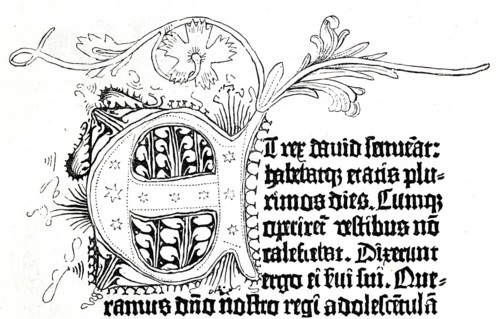 ET rex david senuerat:
habebatq; etatis plu-
rimos dies. Cumq;
operiret᷑ vestibus nō
calefiebat. Dixerunt
ergo ei s̄ui sui. Que-
ramus dn̄o nostro regi adolescētulā